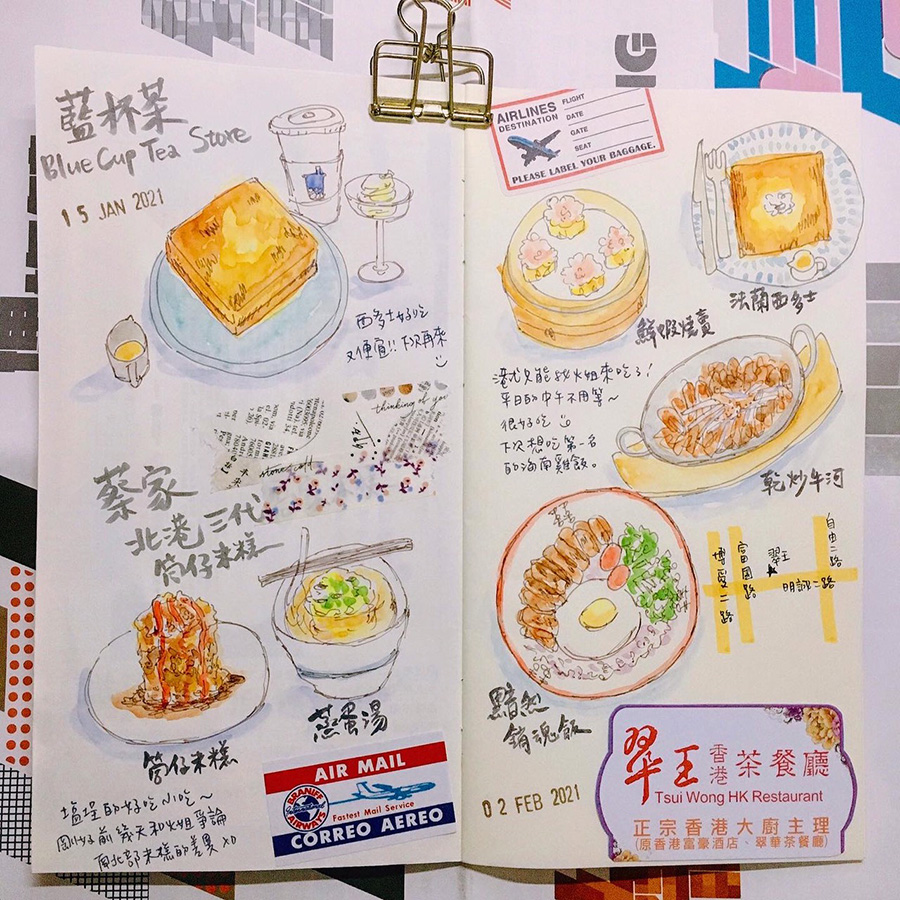 藍杯茶
Blue Cup Tea Store
15 JAN 2021
西多士好吃
又便宜!! 下次再來
thinking of you
蔡家
北港三代
筒仔米糕
筒仔米糕
蒸蛋湯
塩埕的好吃小吃~
剛好前幾天和火姐爭論
南北部米糕的差異 XD
AIR MAIL
BRANIFF
AIRWAYS
Fastest Mail Service
CORREO AEREO
AIRLINES
DESTINATION
FLIGHT
DATE
GATE
SEAT
PLEASE LABEL YOUR BAGGAGE.
法蘭西多士
鮮蝦燒賣
港式只能找火姐來吃了!
平日的中午不用等~
很好吃
下次想吃第一名
的海南雞飯。
乾炒牛河
自由二路
翠王
富國路
博愛二路
明誠二路
黯然
銷魂飯
02 FEB 2021
翠王 香港 茶餐廳
Tsui Wong HK Restaurant
正宗香港大廚主理
(原香港富豪酒店、翠華茶餐廳)